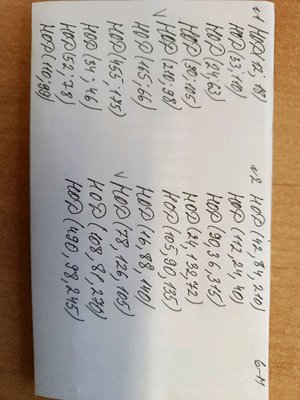 №1 НОД (12, 18)
НОД (33; 110)
НОД (24; 63)
НОД (90; 105)
√ НОД (210; 98)
НОД (165; 66)
НОД (455; 175)
НОД (34; 46)
НОД (52; 78)
НОД (110, 99)
№2 НОД (42, 84, 210)
НОД (112, 24, 40)
НОД (90, 36, 315)
НОД (24, 132, 72)
НОД (105, 90, 135)
НОД (16, 88, 140)
√ НОД (78, 126, 105)
НОД (108, 81, 270)
НОД (490, 98, 245)
6-м